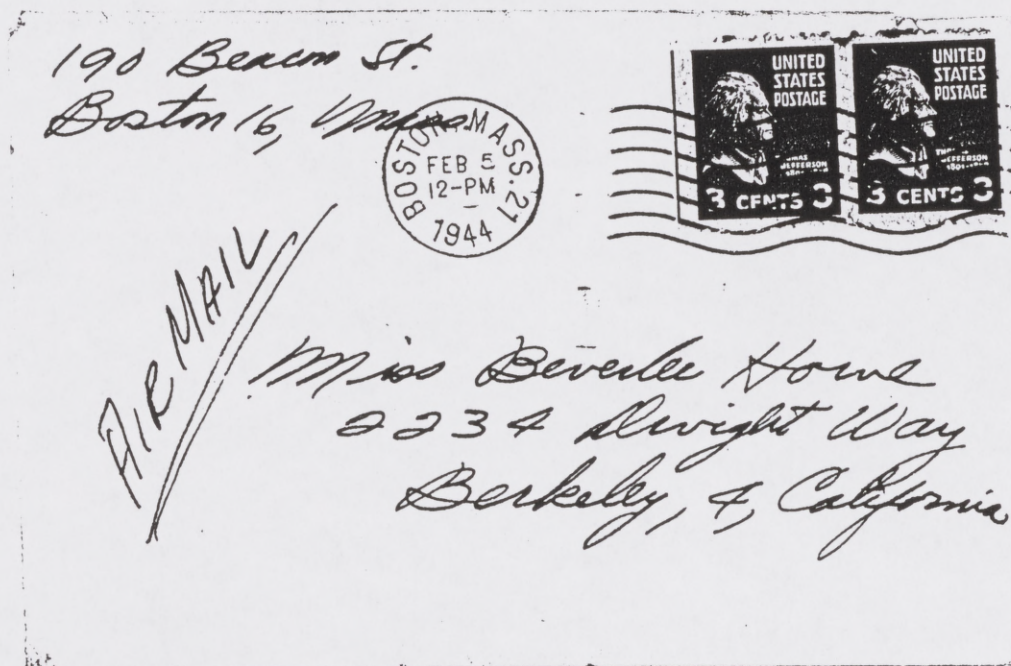 190 Beacon St.
Boston 16, Mass.
BOSTON, MASS. 21
FEB 5
12-PM
1944
UNITED
STATES
POSTAGE
THOMAS
JEFFERSON
3 CENTS 3
UNITED
STATES
POSTAGE
THOMAS
JEFFERSON
3 CENTS 3
AIR MAIL
Miss Beverlee Howe
2234 Dwight Way
Berkeley, 4, California